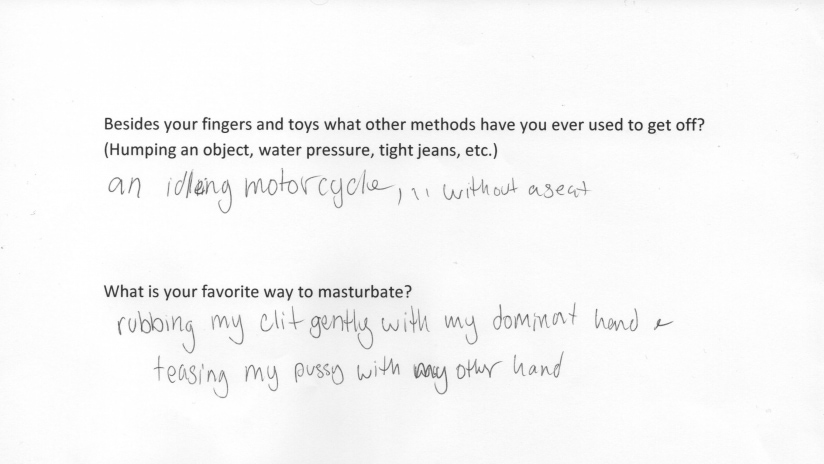 Besides your fingers and toys what other methods have you ever used to get off?
(Humping an object, water pressure, tight jeans, etc.)
an idling motorcycle, ... without a seat
What is your favorite way to masturbate?
rubbing my clit gently with my dominant hand &
teasing my pussy with my other hand